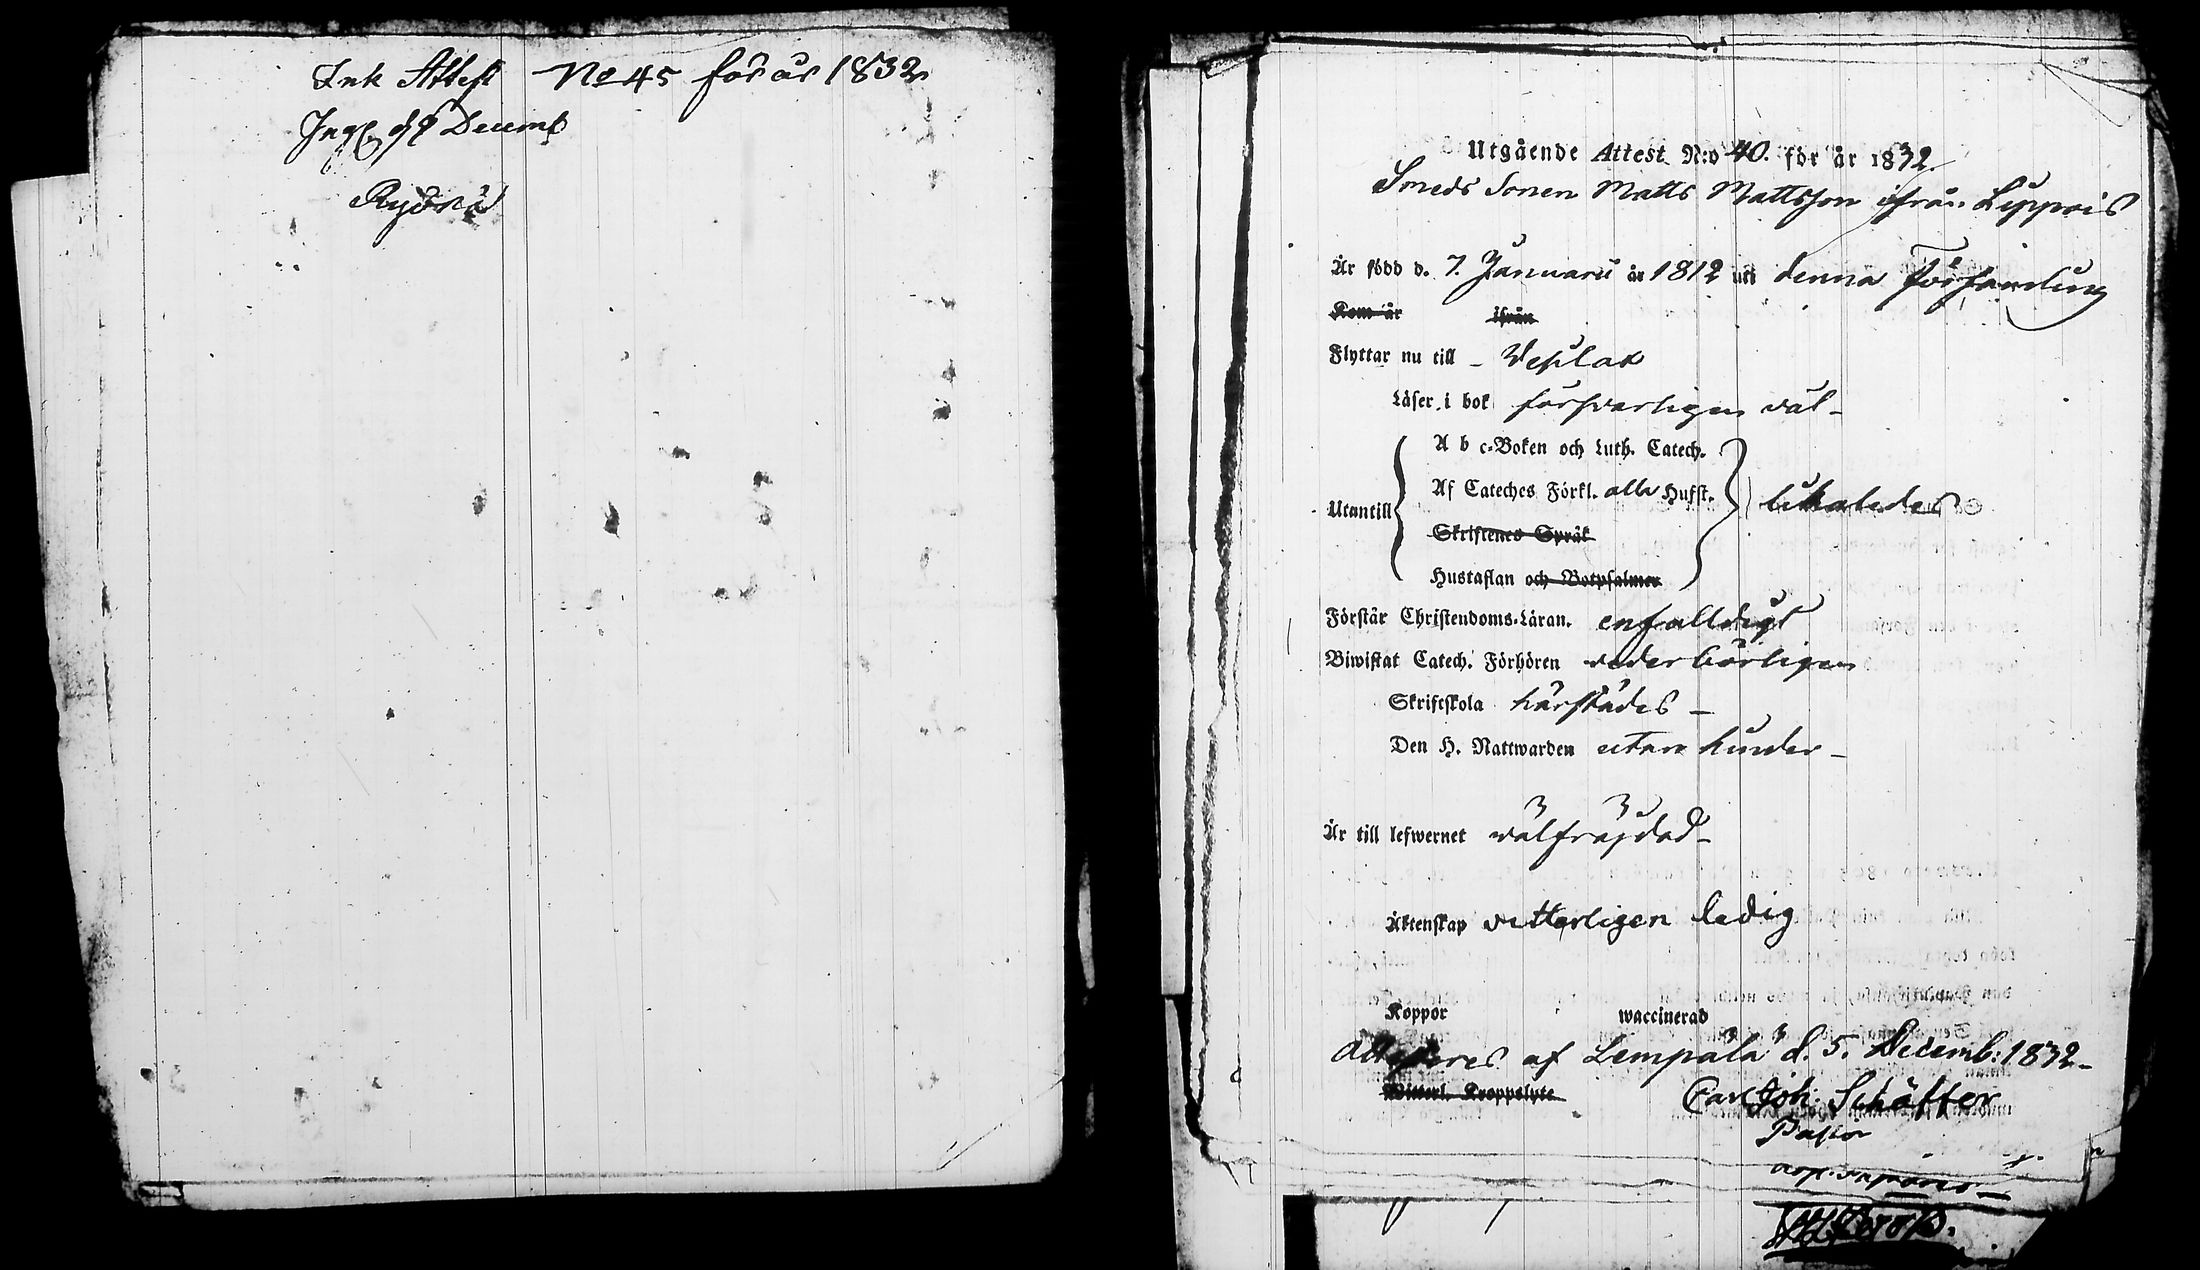 Ink Attest No 45 för år 1832
Ingf. d 9 Decemb
Utgående Attest N:o 40. för år 1832.
Smeds Sonen Matts Mattsson ifrån Lippois
Är född d. 7. Januarii år 1812 uti denna Församling
Kom år ifrån
Flyttar nu till - Wesilax
Läser i bok försvarligen väl -
A b c-Boken och Luth. Catech.
Af Cateches Förkl. alla Hufst.
Utantill likaledes
Skriftenes Språk
Hustaflan och Botpsalmer
Förstår Christendoms-Läran. enfalldigt
Biwistat Catech. Förhören vederbörligen
Skriftskola härstädes -
Den H. Nattwarden utan hinder -
Är till lefwernet välfrejdad -
Äktenskap vitterligen ledig
Koppor waccinerad
Attesteres af Lempälä d. 5. Decemb: 1832 -
Witterl. Kroppslyte
Carl Joh: Schäffer
Pastor